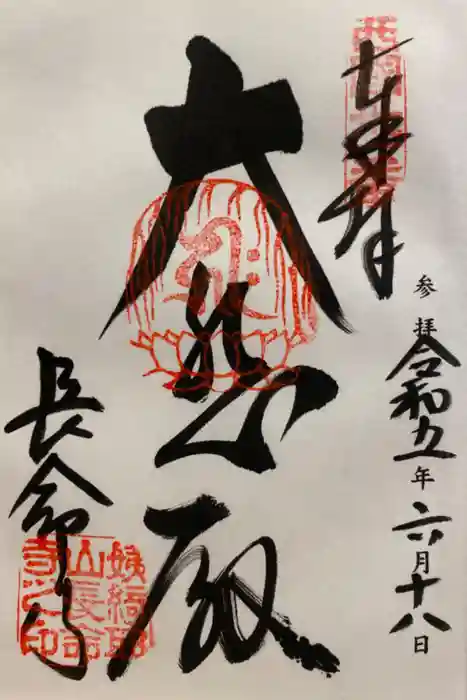 奉拝
参拝 令和五年 六月十八日
大悲殿
長命寺
姨綺耶
山長命
寺之印